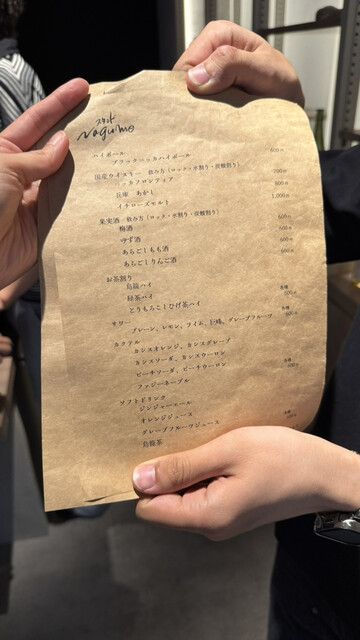 スタンド
Nagumo
ハイボール
ブラックニッカハイボール 600円
国産ウイスキー 飲み方(ロック・水割り・炭酸割り)
ニッカフロンティア 700円
兵庫 あかし 800円
イチローズモルト 1,000円
果実酒 飲み方(ロック・水割り・炭酸割り)
梅酒 600円
ゆず酒 600円
あらごしもも酒 600円
あらごしりんご酒 600円
お茶割り
烏龍ハイ
緑茶ハイ
とうもろこしひげ茶ハイ
サワー
プレーン、レモン、ライム、巨峰、グレープフルーツ
カクテル
カシスオレンジ、カシスグレープ
カシスソーダ、カシスウーロン
ピーチソーダ、ピーチウーロン
ファジーネーブル
ソフトドリンク
ジンジャーエール
オレンジジュース
グレープフルーツジュース
烏龍茶